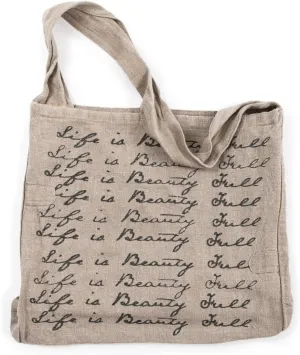 Life is Beauty Full
Life is Beauty Full
Life is Beauty Full
Life is Beauty Full
Life is Beauty Full
Life is Beauty Full
Life is Beauty Full
Life is Beauty Full
Life is Beauty Full